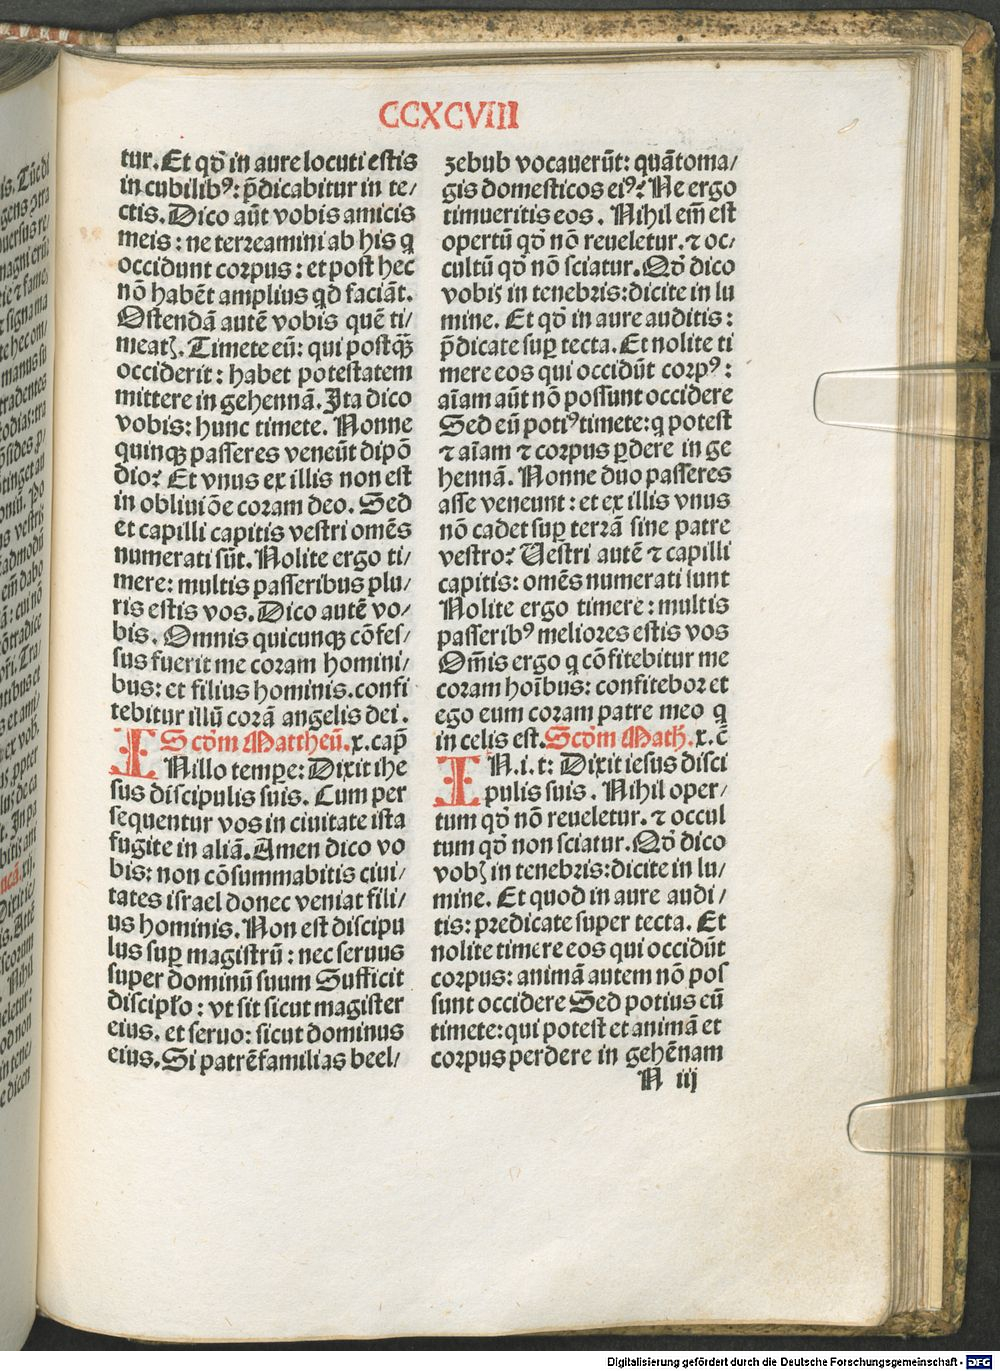 CCXCVIII
tur. Et qđ in aure locuti estis
in cubilibꝰ: p̄dicabitur in te/
ctis. Dico aūt vobis amicis
meis: ne terreamini ab his q
occidunt corpus: et post hec
nō habēt amplius qd faciāt.
Ostendā autē vobis quē ti/
meatꝭ. Timete eū: qui postꝙ̄
occiderit: habet potestatem
mittere in gehennā. Ita dico
vobis: hunc timete. Nonne
quinqꝫ passeres veneūt dipō
dio? Et vnus ex illis non est
in obliviōe coram deo. Sed
et capilli capitis vestri omēs
numerati sūt. Nolite ergo ti/
mere: multis passeribus plu/
ris estis vos. Dico autē vo/
bis. Omnis quicunqꝫ cōfes/
sus fuerit me coram homini/
bus: et filius hominis. confi
tebitur illū corā angelis dei.
IS Scđm Mattheū. x. cap̄
Nillo tempe: Dixit ihe
sus discipulis suis. Cum per
sequentur vos in ciuitate ista
fugite in aliā. Amen dico vo
bis: non cōsummabitis ciui/
tates israel donec veniat fili/
us hominis. Non est discipu
lus suꝑ magistrū: nec seruus
super dominū suum Sufficit
discipło: vt sit sicut magister
eius. et seruo: sicut dominus
eius. Si patrēfamilias beel/
zebub vocauerūt: quātoma/
gis domesticos eiꝰ? Ne ergo
timueritis eos. Nihil em̄ est
opertū qđ nō reueletur. ⁊ oc/
cultū qđ nō sciatur. Qđ dico
vobis in tenebris: dicite in lu
mine. Et qđ in aure auditis:
p̄dicate suꝑ tecta. Et nolite ti
mere eos qui occidūt corpꝰ:
aīam aūt nō possunt occidere
Sed eū potiꝰ timete: q potest
⁊ aīam ⁊ corpus ꝑdere in ge
hennā. Nonne duo passeres
asse veneunt: et ex illis vnus
nō cadet suꝑ terrā sine patre
vestro? Uestri autē ⁊ capilli
capitis: omēs numerati sunt
Nolite ergo timere: multis
passeribꝰ meliores estis vos
Om̄is ergo q cōfitebitur me
coram hoībus: confitebor et
ego eum coram patre meo q
in celis est. Scđm Math. x. c̄
IN. i. t: Dixit iesus disci
pulis suis. Nihil oper/
tum qđ nō reueletur. ⁊ occul
tum qđ non sciatur. Qđ dico
vobꝭ in tenebris: dicite in lu/
mine. Et quod in aure audi/
tis: predicate super tecta. Et
nolite timere eos qui occidūt
corpus: animā autem nō pos
sunt occidere Sed potius eū
timete: qui potest et animā et
corpus perdere in gehēnam
N iij
Digitalisierung gefördert durch die Deutsche Forschungsgemeinschaft - DFG